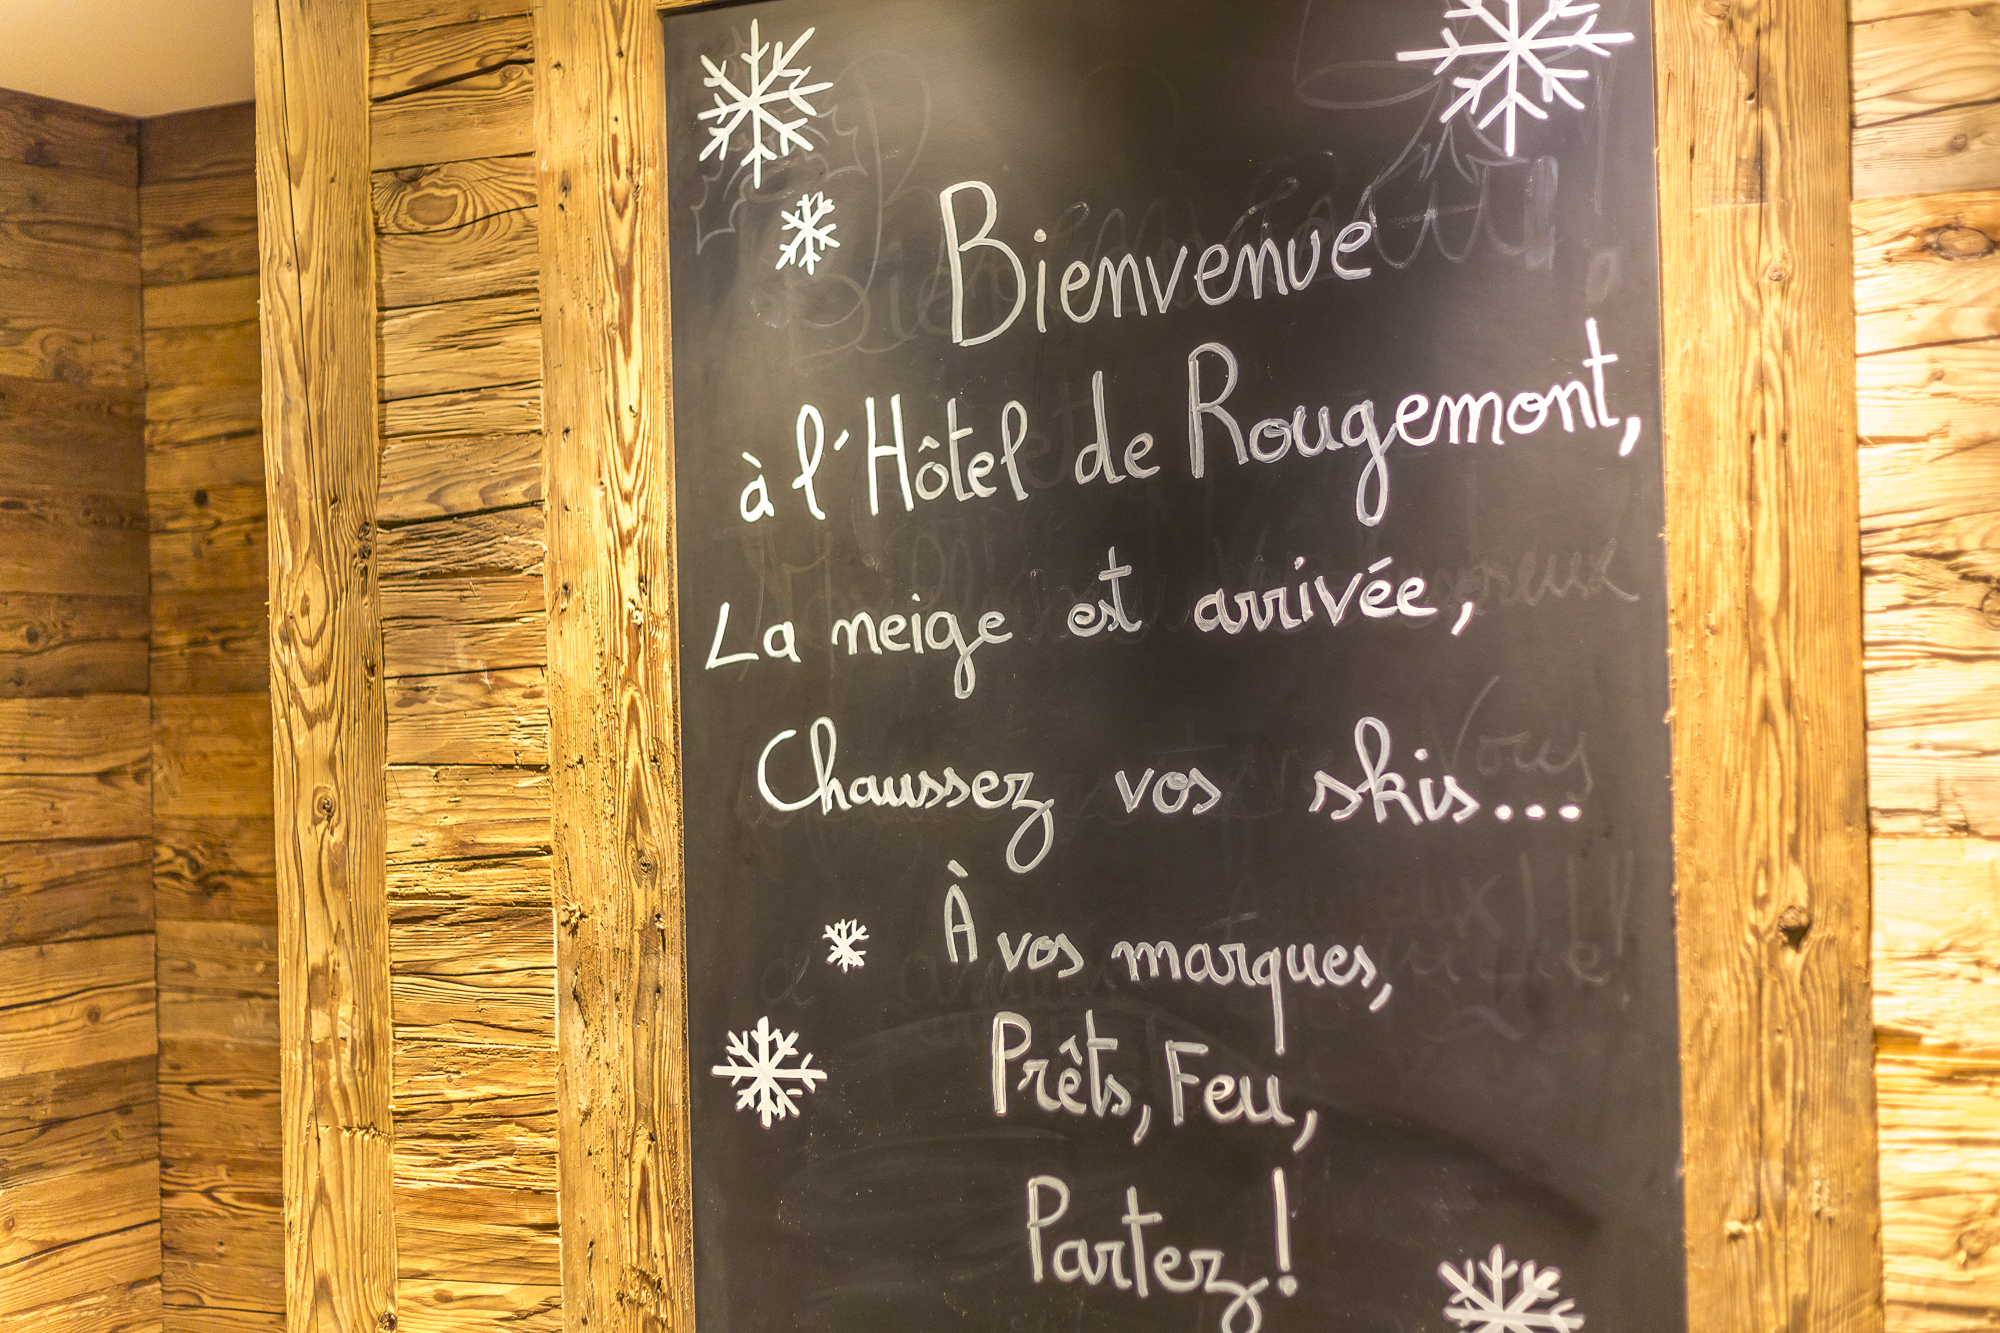 Bienvenue
à l'Hôtel de Rougemont,
La neige est arrivée,
Chaussez vos skis...
À vos marques,
Prêts, Feu,
Partez !